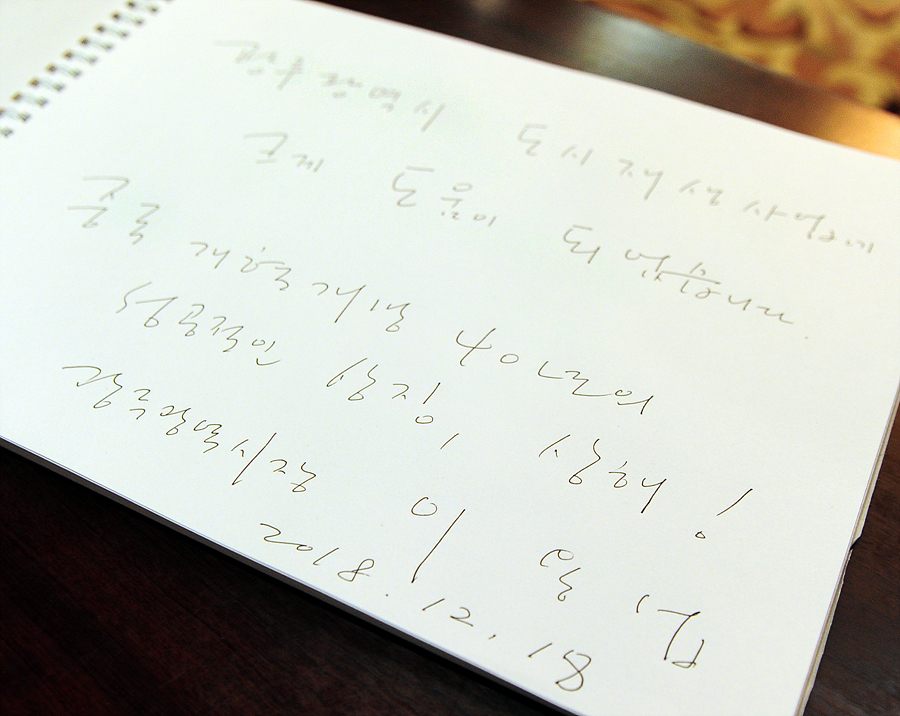 광주광역시 도시재생사업에
크게 도움이 되겠습니다.
중국 개혁개방 40년의
성공적인 상징, 상해!
광주광역시장 이용섭
2018.12.18